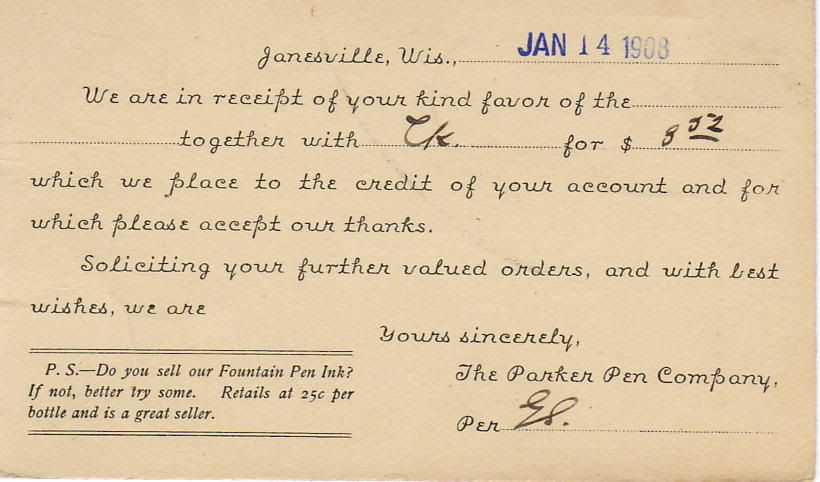 Janesville, Wis., JAN 14 1908
We are in receipt of your kind favor of the
together with Ck. for $ 8 52
which we place to the credit of your account and for
which please accept our thanks.
Soliciting your further valued orders, and with best
wishes, we are
Yours sincerely,
The Parker Pen Company,
Per
P. S.—Do you sell our Fountain Pen Ink?
If not, better try some. Retails at 25c per
bottle and is a great seller.